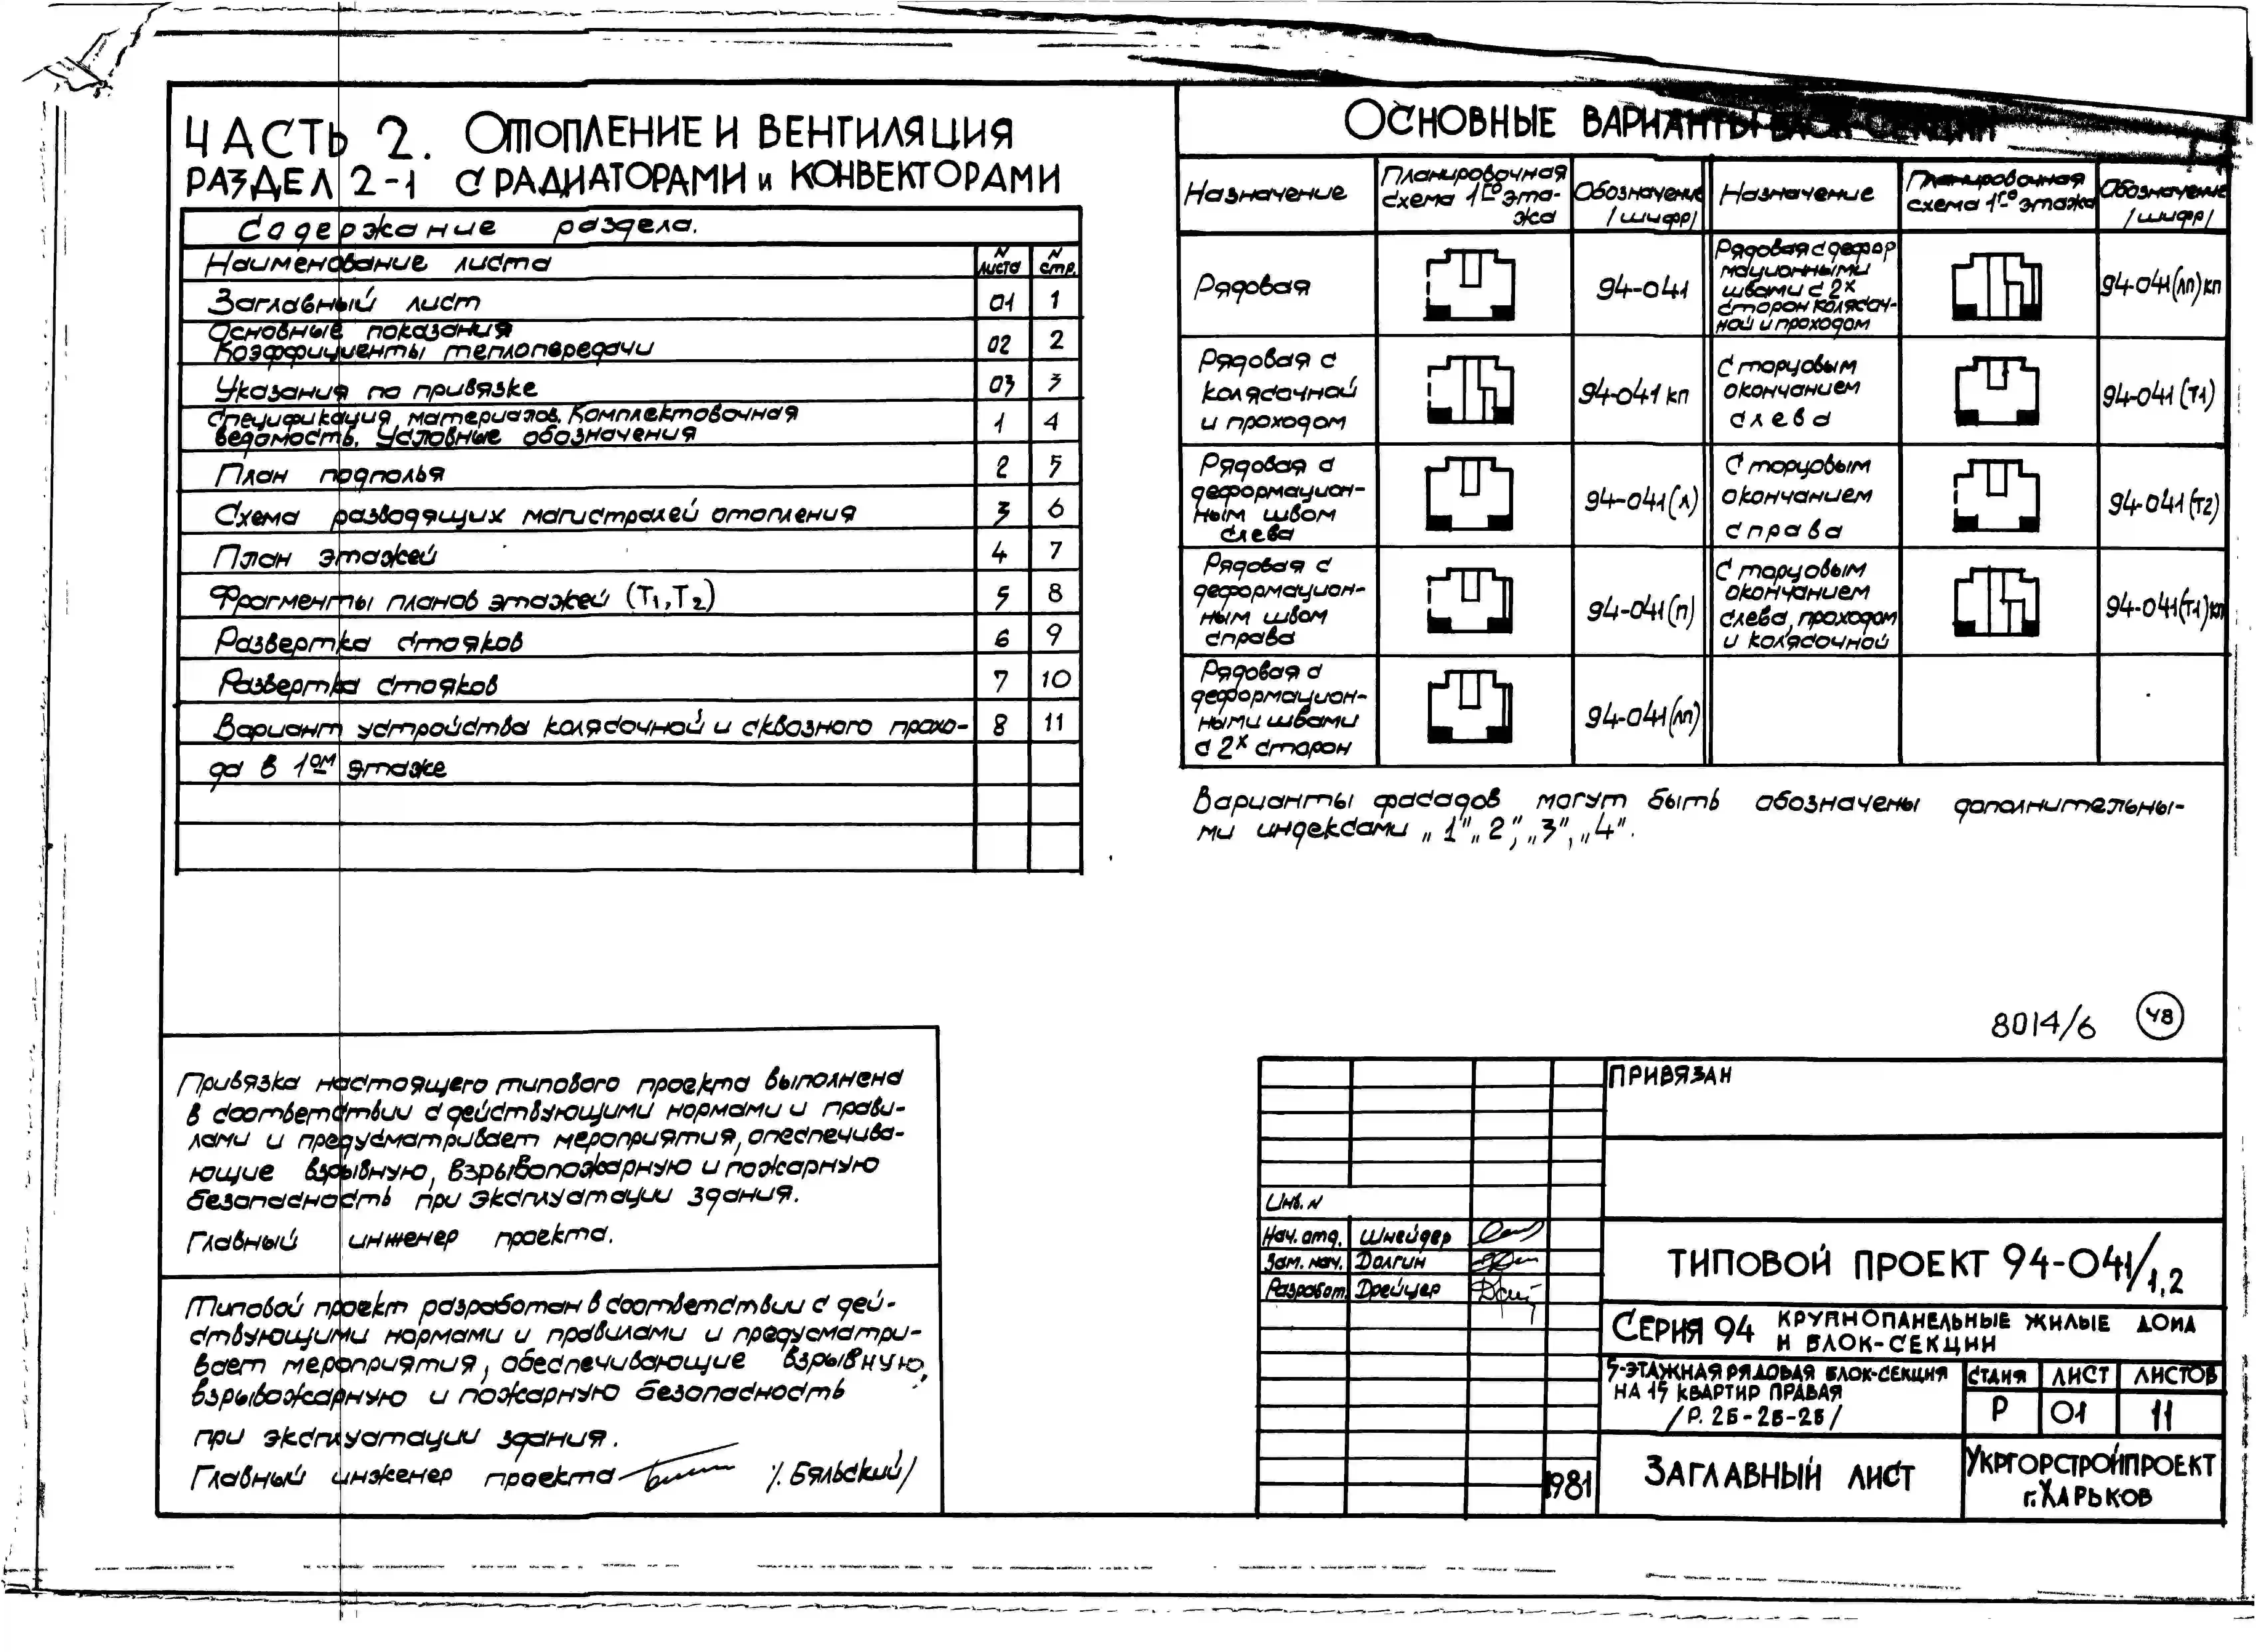 ЧАСТЬ 2. ОТОПЛЕНИЕ И ВЕНТИЛЯЦИЯ
РАЗДЕЛ 2-1 С РАДИАТОРАМИ И КОНВЕКТОРАМИ
Содержание раздела.
Наименование листа N листа N стр.
Заглавный лист 01 1
Основные показания
Коэффициенты теплопередачи 02 2
Указания по привязке 03 3
Спецификация материалов. Комплектовочная
ведомость. Условные обозначения 1 4
План подполья 2 5
Схема разводящих магистралей отопления 3 6
План этажей 4 7
Фрагменты планов этажей (Т1,Т2) 5 8
Развертка стояков 6 9
Развертка стояков 7 10
Вариант устройства колясочной и сквозного прохо- 8 11
да в 1ом этаже
ОСНОВНЫЕ ВАРИАНТЫ БЛОК-СЕКЦИИ
Назначение
Планировочная
схема 1го эта-
жа
Обозначение
/шифр/
Назначение
Планировочная
схема 1го этажа
Обозначение
/шифр/
Рядовая
94-041
Рядовая с
колясочной
и проходом
94-041 кп
Рядовая с
деформацион-
ным швом
слева
94-041(л)
Рядовая с
деформацион-
ным швом
справа
94-041(п)
Рядовая с
деформацион-
ными швами
с 2х сторон
94-041(лп)
Рядовая с дефор
мационными
швами с 2х
сторон колясоч-
ной и проходом
94-041(лп)кп
С торцовым
окончанием
слева
94-041(Т1)
С торцовым
окончанием
справа
94-041(Т2)
С торцовым
окончанием
слева, проходом
и колясочной
94-041(Т1)кп
Варианты фасадов могут быть обозначены дополнительны-
ми индексами „1" „2", „3", „4".
8014/6 48
Привязка настоящего типового проекта выполнена
в соответствии с действующими нормами и прави-
лами и предусматривает мероприятия, опеспечива-
ющие взрывную, взрывопожарную и пожарную
безопасность при эксплуатации здания.
Главный инженер проекта.
Типовой проект разработан в соответствии с дей-
ствующими нормами и правилами и предусматри-
вает мероприятия, обеспечивающие взрывную,
взрывожарную и пожарную безопасность
при эксплуатации здания.
Главный инженер проекта /. Бяльский/
ПРИВЯЗАН
Инв. N
Нач. отд. Шнейдер
Зам. нач. Долгин
Разработ. Дрейцер
1981
ТИПОВОЙ ПРОЕКТ 94-041/1,2
СЕРИЯ 94 КРУПНОПАНЕЛЬНЫЕ ЖИЛЫЕ ДОМА
И БЛОК-СЕКЦИИ
5-ЭТАЖНАЯ РЯДОВАЯ БЛОК-СЕКЦИЯ
НА 15 КВАРТИР ПРАВАЯ
/Р. 2Б-2Б-2Б/
СТДИЯ ЛИСТ ЛИСТОВ
Р 01 11
ЗАГЛАВНЫЙ ЛИСТ
УКРГОРСТРОЙПРОЕКТ
г. ХАРЬКОВ